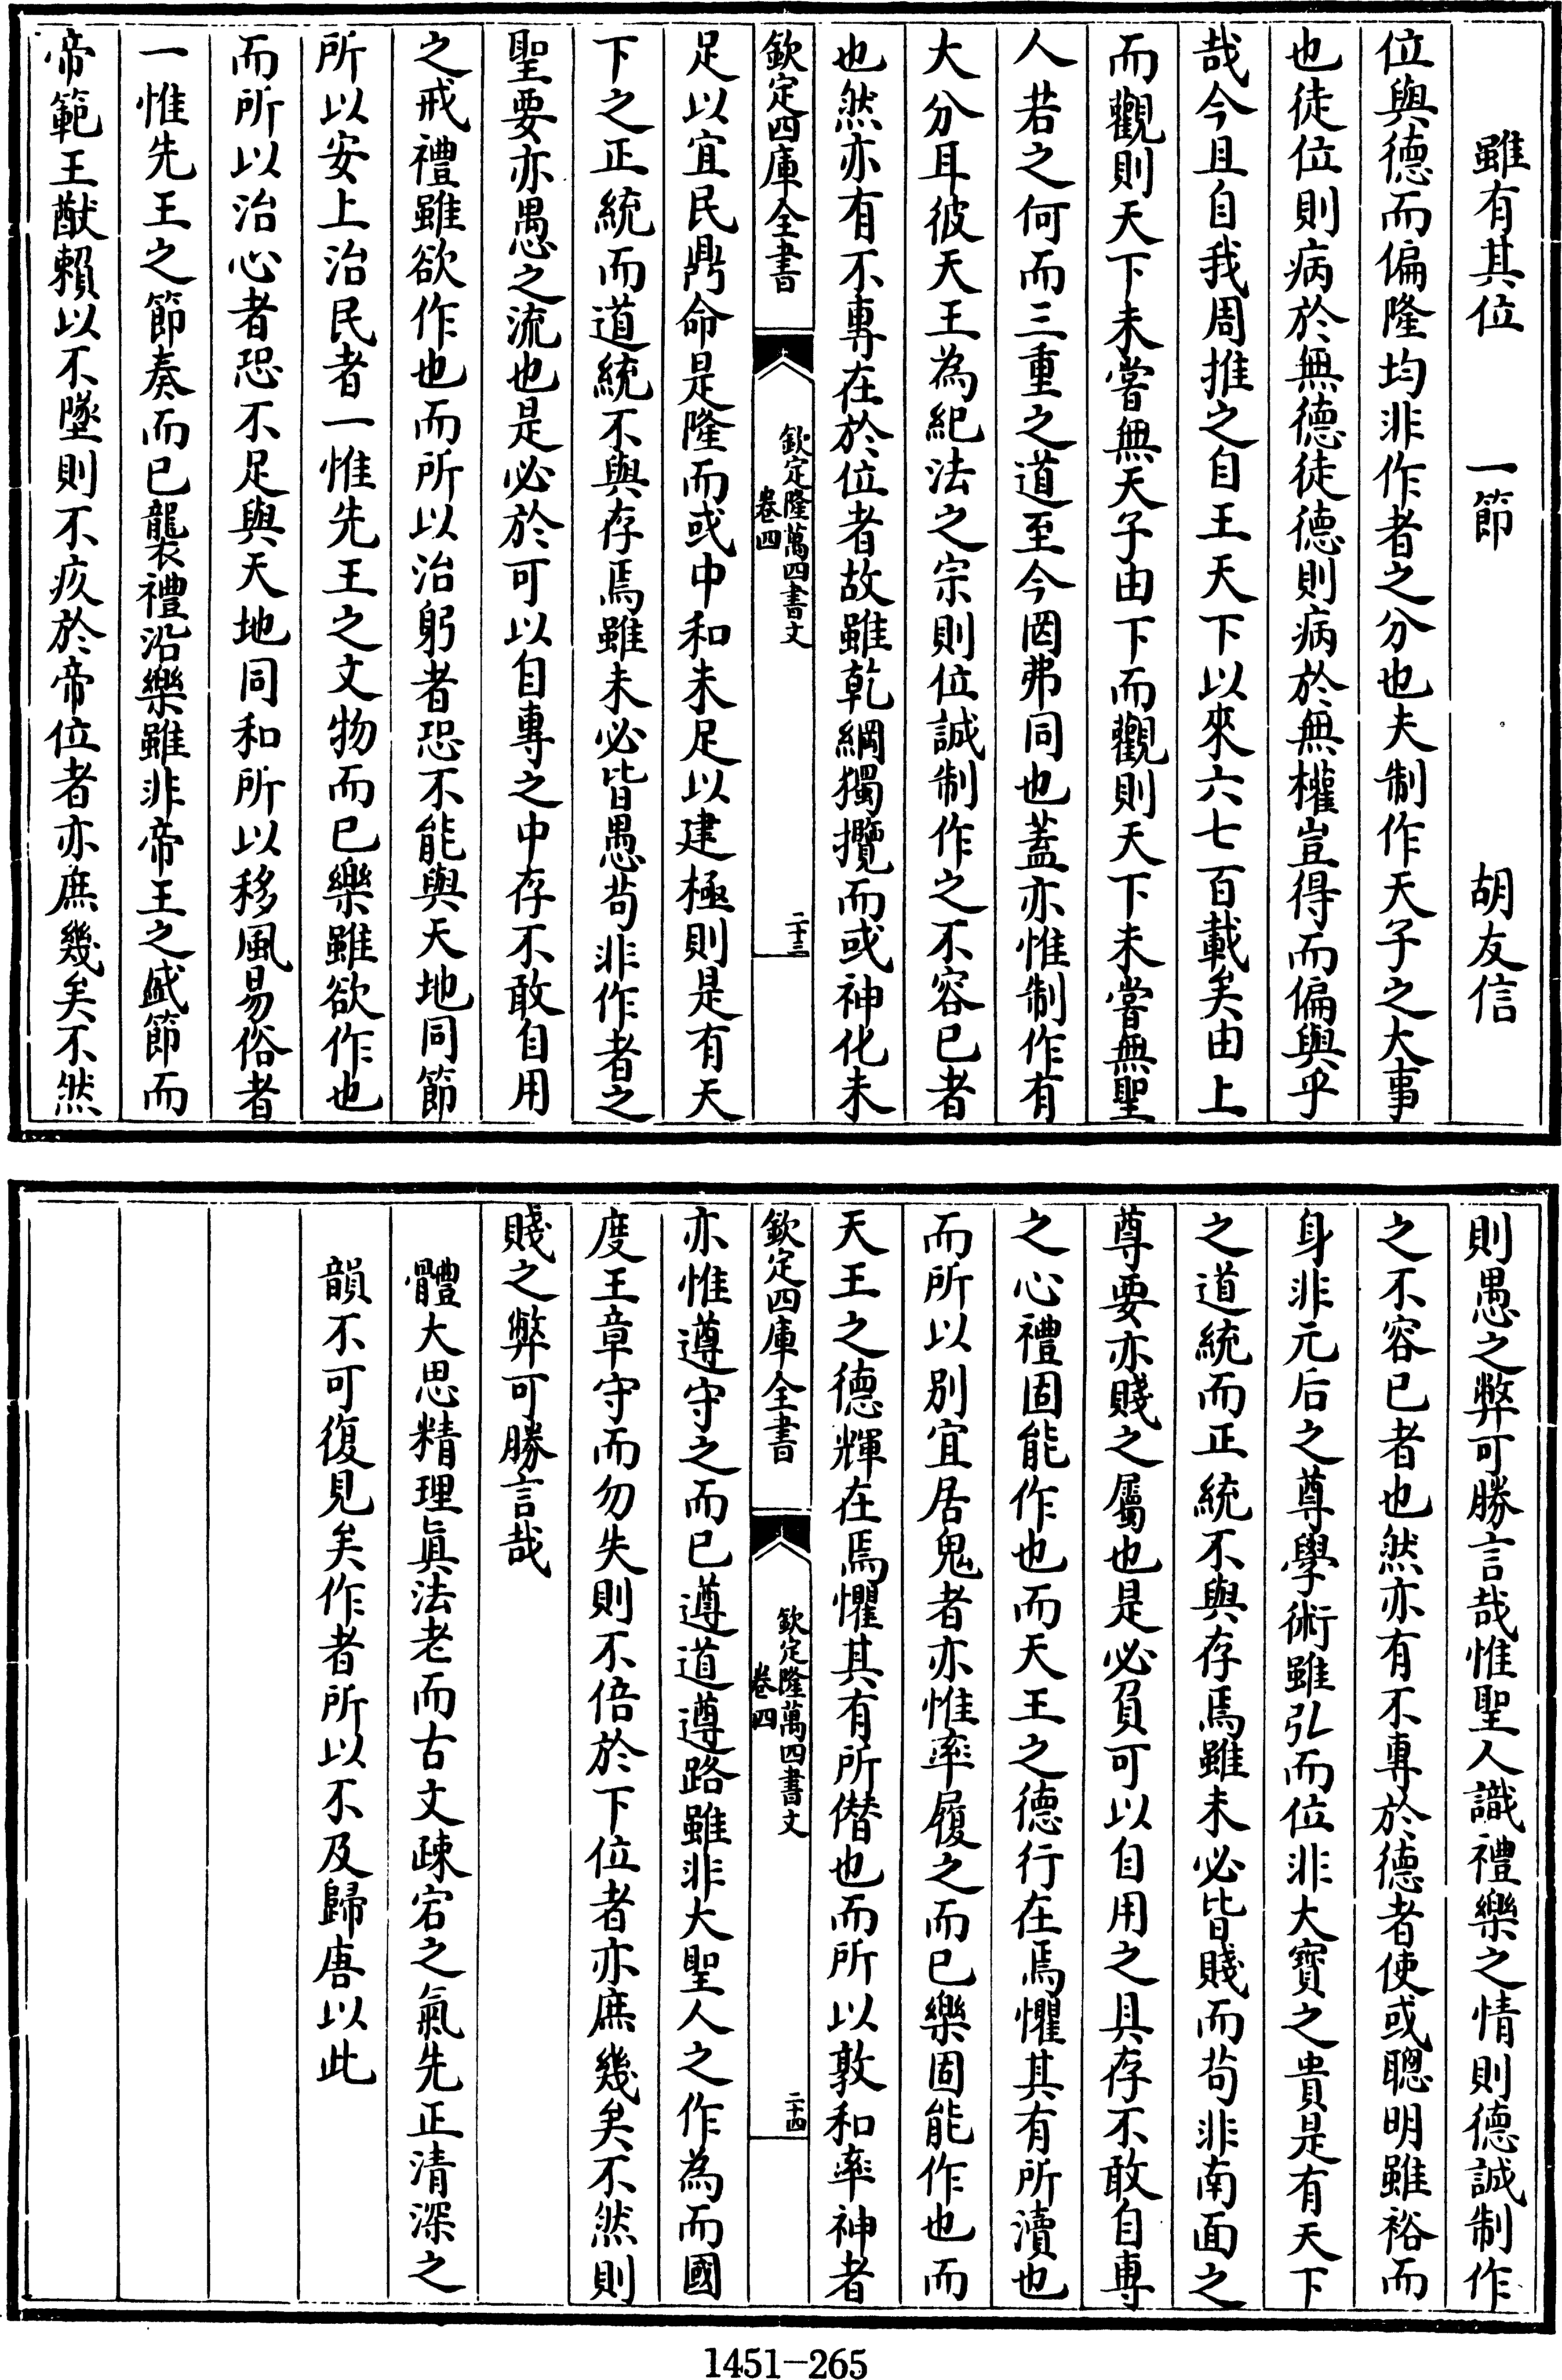 雖有其位　一節　胡友信
位與德而偏隆均非作者之分也夫制作天子之大事
也徒位則病於無德徒德則病於無權豈得而偏與乎
哉今且自我周推之自王天下以來六七百載矣由上
而觀則天下未嘗無天子由下而觀則天下未嘗無聖
人若之何而三重之道至今罔弗同也蓋亦惟制作有
大分耳彼天王為紀法之宗則位誠制作之不容已者
也然亦有不專在於位者故雖乾綱獨攬而或神化未
欽定四庫全書
欽定隆萬四書文
卷四
二十三
足以宜民鼎命是隆而或中和未足以建極則是有天
下之正統而道統不與存焉雖未必皆愚苟非作者之
聖要亦愚之流也是必於可以自專之中存不敢自用
之戒禮雖欲作也而所以治躬者恐不能與天地同節
所以安上治民者一惟先王之文物而已樂雖欲作也
而所以治心者恐不足與天地同和所以移風易俗者
一惟先王之節奏而已襲禮沿樂雖非帝王之盛節而
帝範王猷賴以不墜則不疚於帝位者亦庶幾矣不然
則愚之弊可勝言哉惟聖人識禮樂之情則德誠制作
之不容已者也然亦有不專於德者使或聰明雖裕而
身非元后之尊學術雖弘而位非大寶之貴是有天下
之道統而正統不與存焉雖未必皆賤而苟非南面之
尊要亦賤之屬也是必負可以自用之具存不敢自專
之心禮固能作也而天王之德行在焉懼其有所瀆也
而所以別宜居鬼者亦惟率履之而已樂固能作也而
天王之德輝在焉懼其有所僭也而所以敦和率神者
欽定四庫全書
欽定隆萬四書文
卷四
二十四
亦惟遵守之而已遵道遵路雖非大聖人之作為而國
度王章守而勿失則不倍於下位者亦庶幾矣不然則
賤之弊可勝言哉
體大思精理眞法老而古文疎宕之氣先正清深之
韻不可復見矣作者所以不及歸唐以此
1451-265